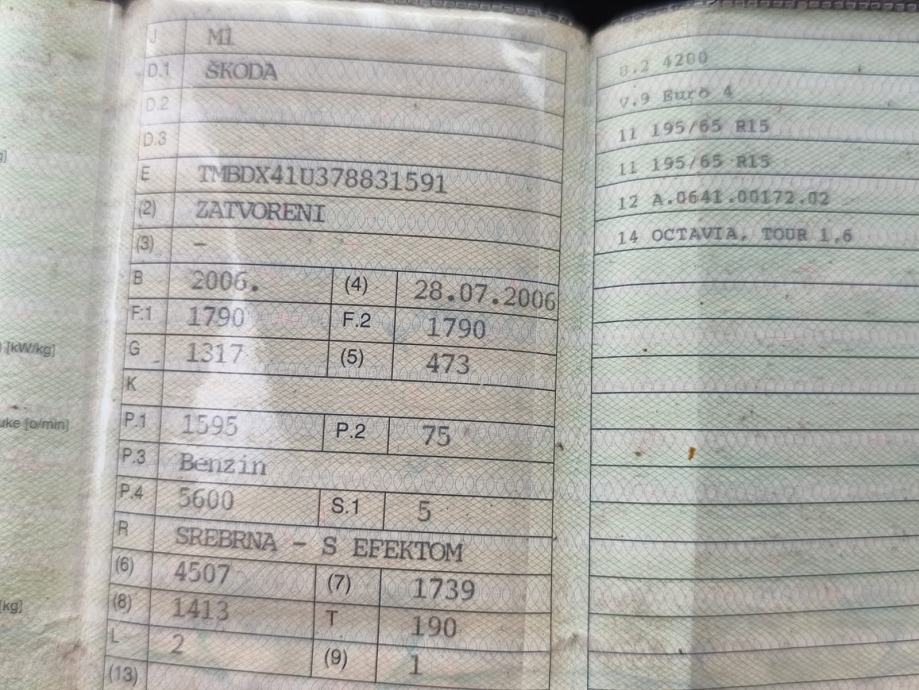 J M1
D.1 ŠKODA
D.2
D.3
E TMBDX41U378831591
(2) ZATVORENI
(3) –
B 2006. (4) 28.07.2006
F.1 1790 F.2 1790
[kW/kg] G 1317 (5) 473
K
[o/min] P.1 1595 P.2 75
P.3 Benzin
P.4 5600 S.1 5
R SREBRNA – S EFEKTOM
(6) 4507 (7) 1739
[kg] (8) 1413 T 190
L 2 (9) 1
(13)
U.2 4200
V.9 Euro 4
11 195/65 R15
11 195/65 R15
12 A.0641.00172.02
14 OCTAVIA, TOUR 1,6